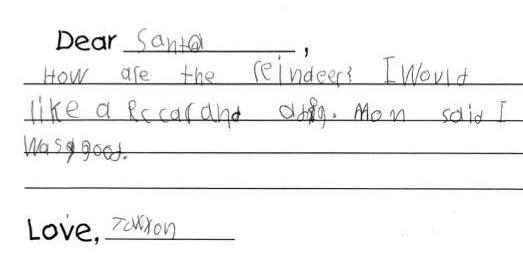 Dear Santa,
How are the reindeer? I Would
like a Rc car and a dog. Mom said I
Was good.
Love,